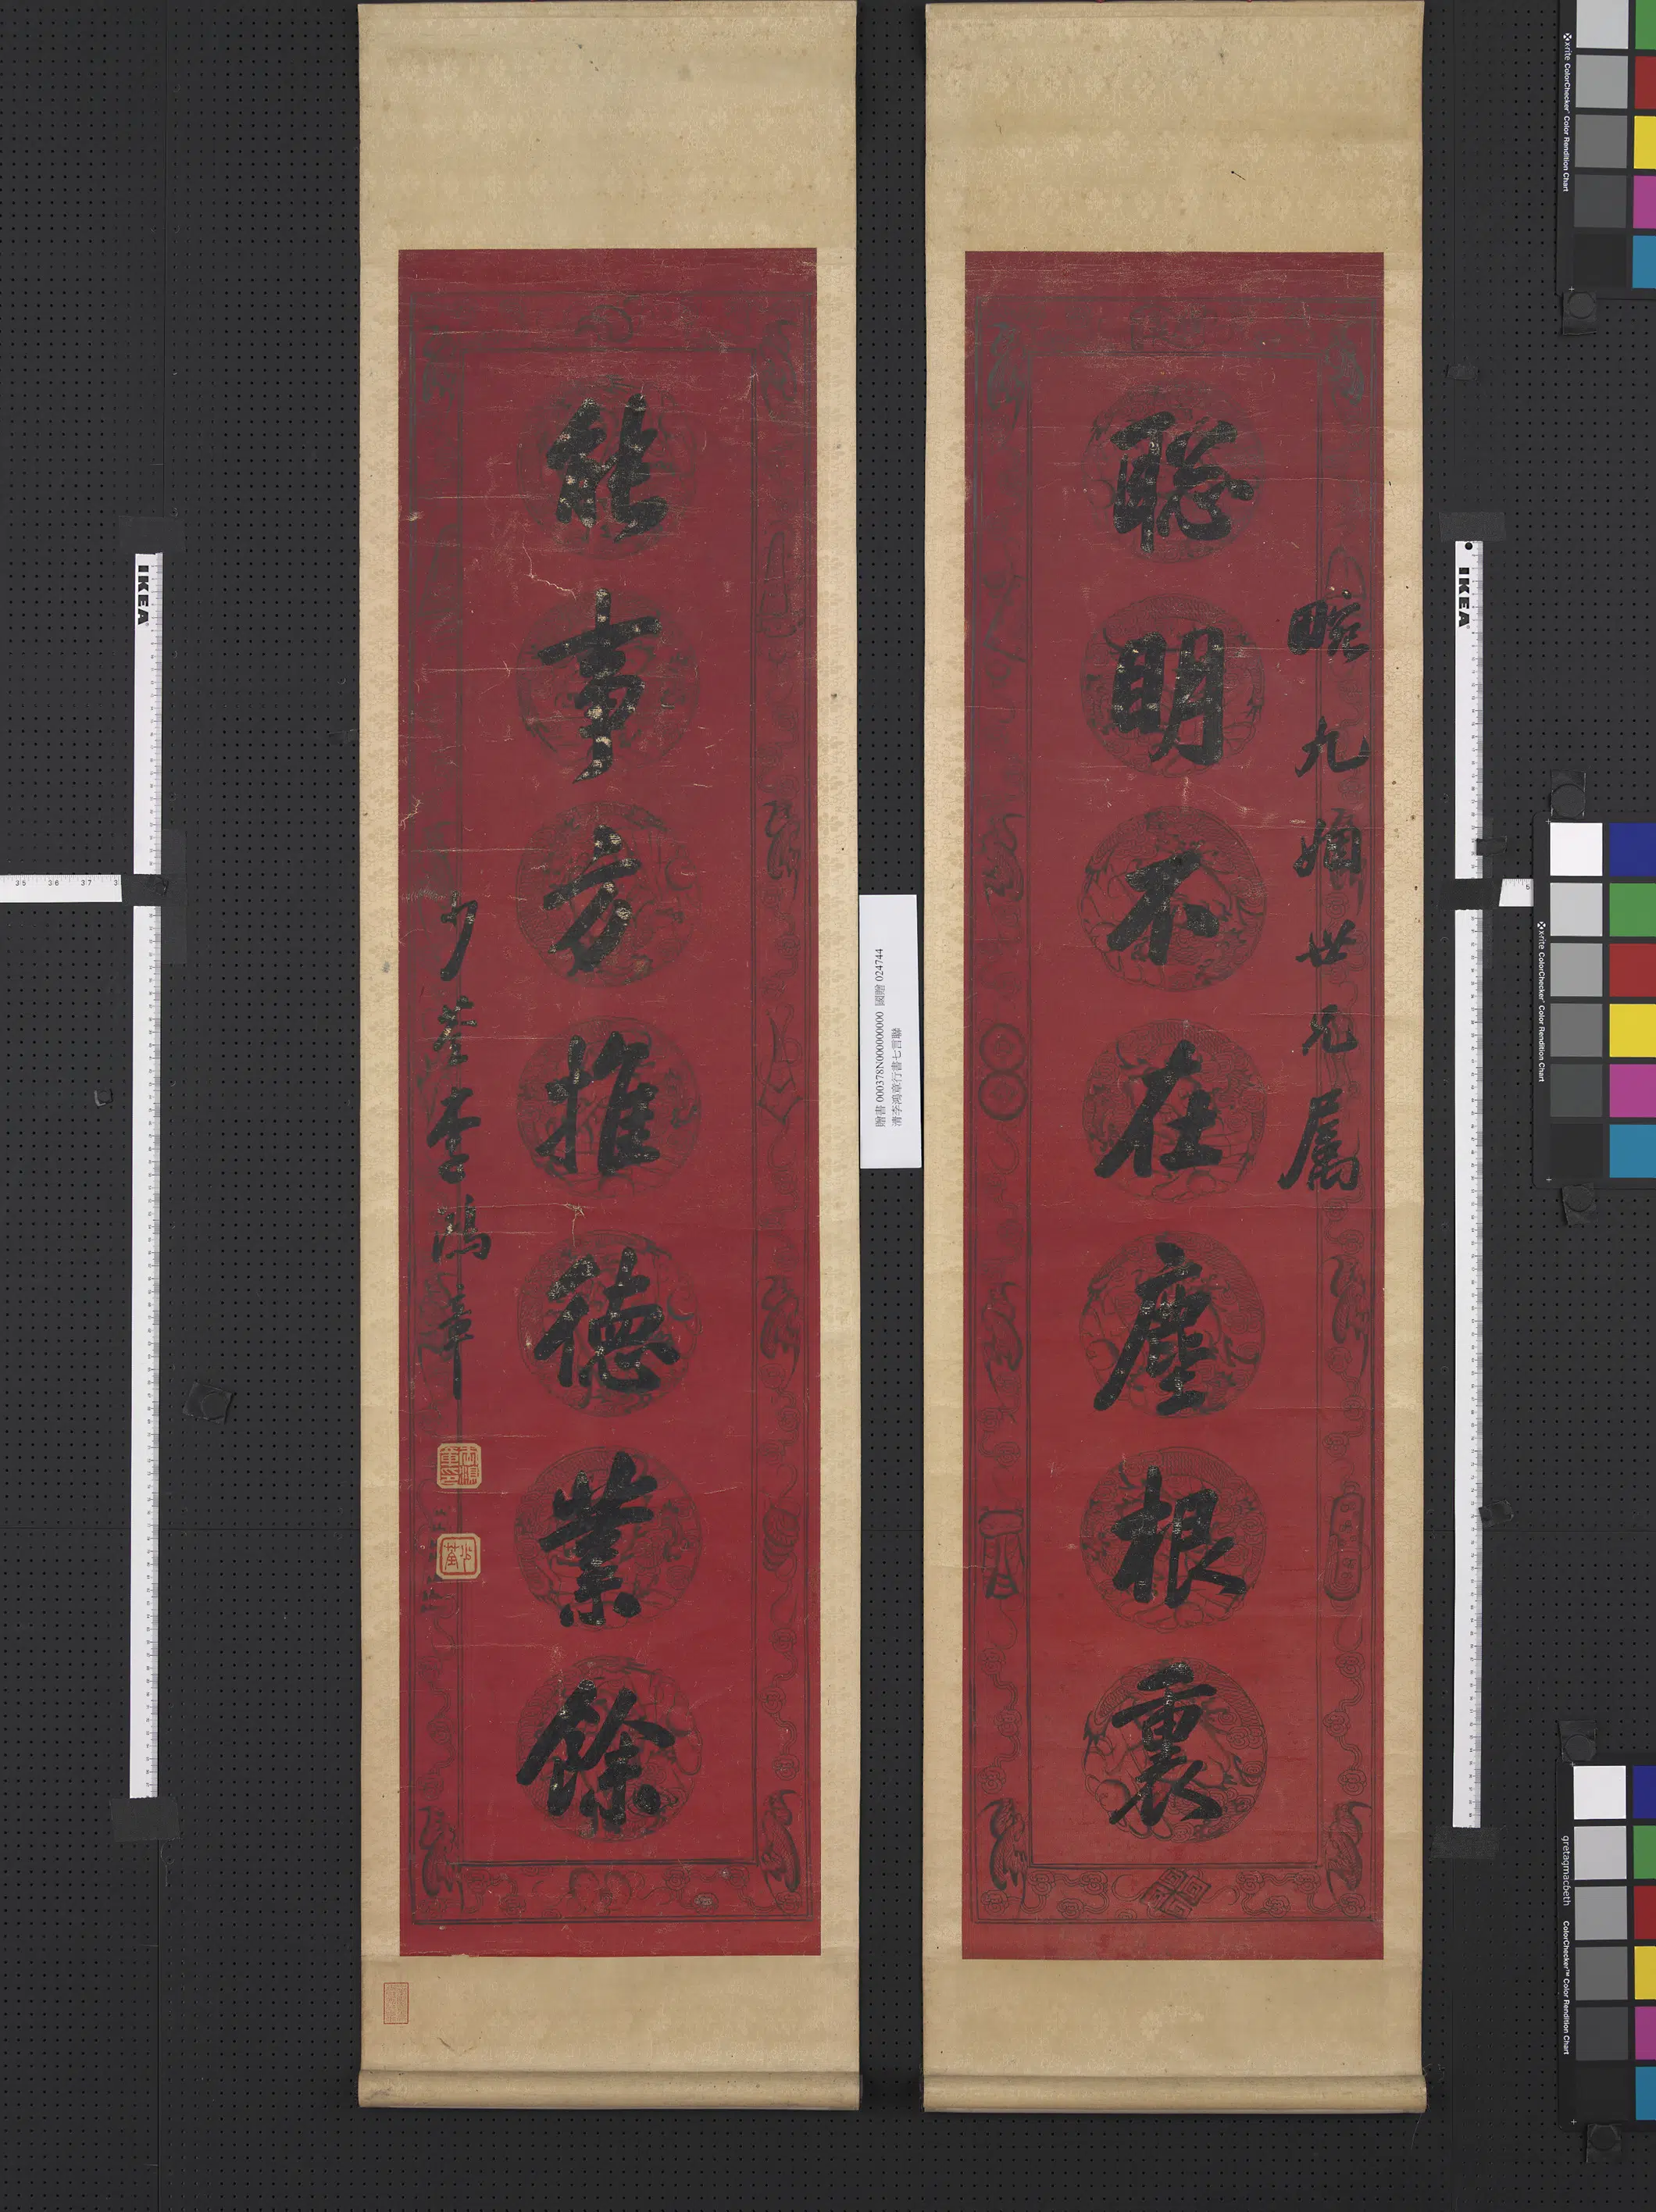 聰明不在塵根裏
瞻九姻世兄屬
能事方推德業餘
少荃李鴻章
少荃
贈書 000378N000000000 國贈 024744
清李鴻章行書七言聯
IKEA
IKEA
35 36 37
x-rite ColorChecker Color Rendition Chart
x-rite ColorChecker Color Rendition Chart
gretagmacbeth ColorChecker Color Rendition Chart